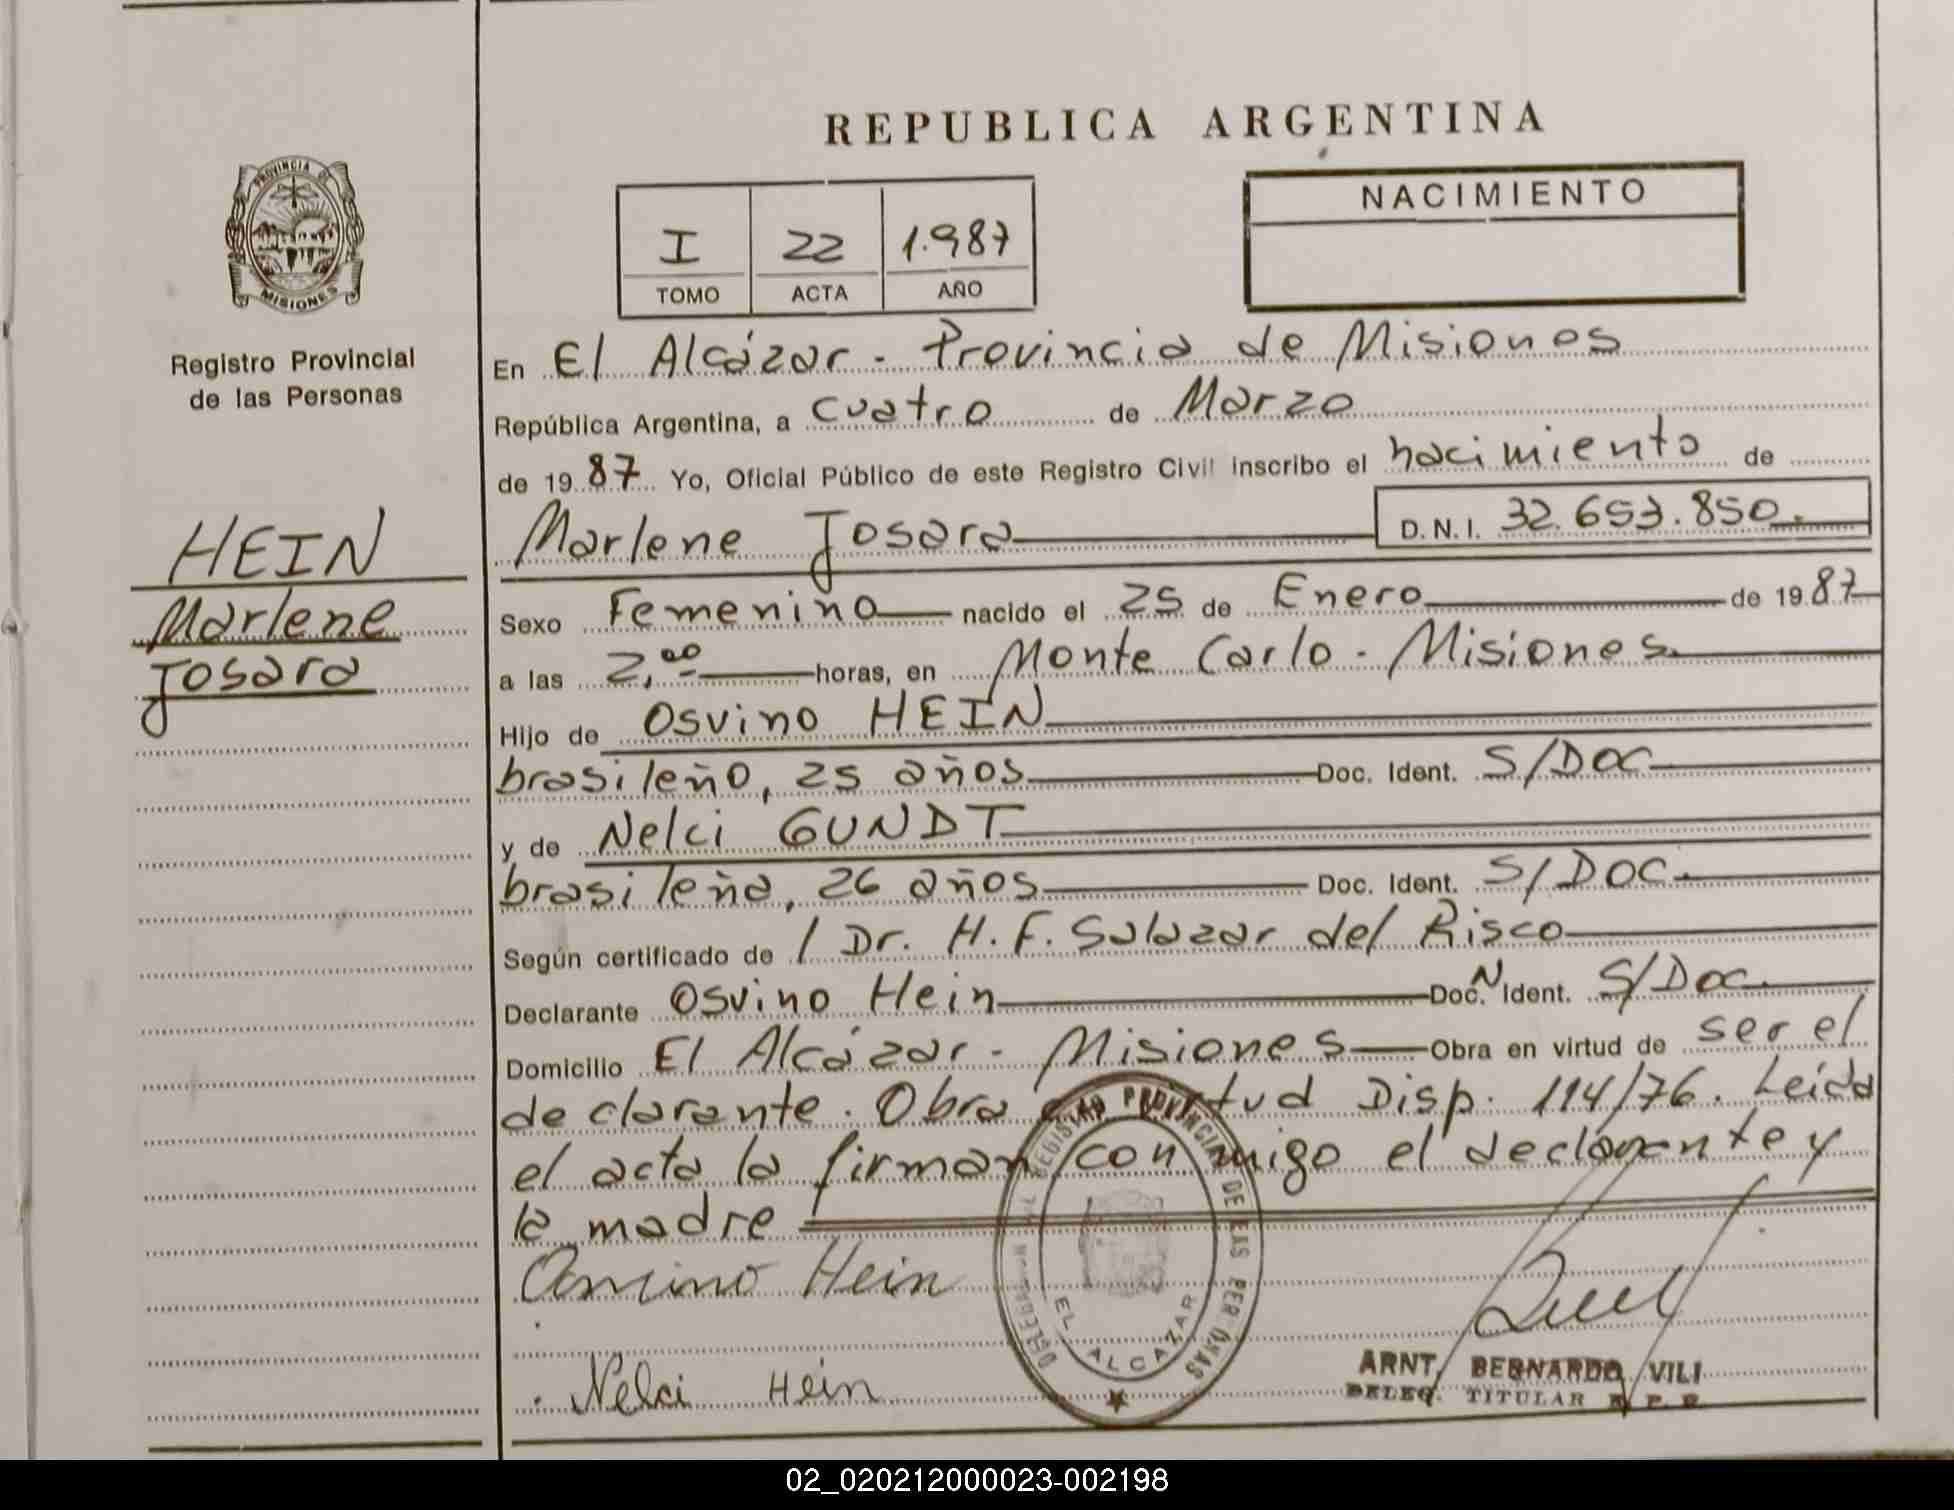 REPUBLICA ARGENTINA
PROVINCIA DE
MISIONES
Registro Provincial
de las Personas
HEIN
Marlene
Josara
I 22 1.987
TOMO ACTA AÑO
NACIMIENTO
En El Alcázar - Provincia de Misiones
República Argentina, a cuatro de Marzo
de 19 87 Yo, Oficial Público de este Registro Civil inscribo el nacimiento de
Marlene Josara D.N.I. 32.653.850.
Sexo Femenino nacido el 25 de Enero de 19 87
a las 2,00 horas, en Monte Carlo - Misiones
Hijo de Osvino HEIN
brasileño, 25 años Doc. Ident. S/DOC
y de Nelci GUNDT
brasileña, 26 años Doc. Ident. S/DOC.
Según certificado de / Dr. H. F. Salazar del Risco
Declarante Osvino Hein Doc. N Ident. S/Doc.
Domicilio El Alcázar - Misiones Obra en virtud de ser el
declarante. Obra virtud Disp. 114/76. Leída
el acta la firman conmigo el declarante y
la madre
Hein
Nelci Hein
REGISTRO PROVINCIAL DE LAS PERSONAS
EL ALCAZAR
ARNT, BERNARDO VILI
DELEG. TITULAR R. P. P.
02_020212000023-002198